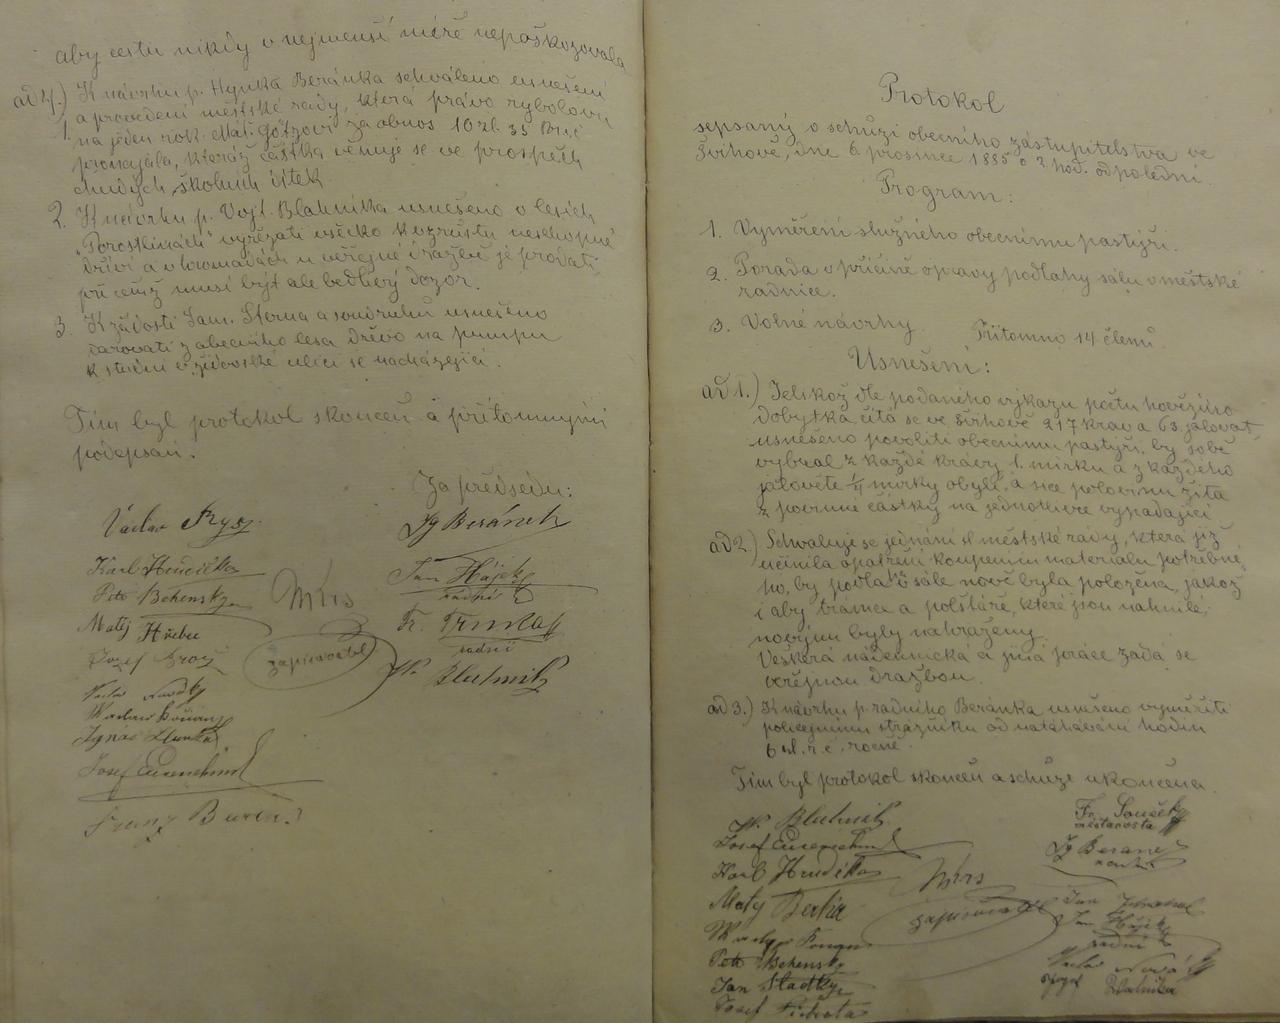 aby cestu nikdy v nejmenší míře nepoškozovala
ad 4.) K návrhu p. Hynka Beránka schváleno usnešení
1. a provedení městské rady, která právo rybolovu
na jeden rok Mat. Götzovi za obnos 10 zl. 35
pronajala, kteráž částka věnuje se ve prospěch
chudých školních dítek
2. K návrhu p. Vojt. Blahníka usnešeno v lesích
"Porostlinách" vyřezati všecko k vzrůstu neschopné
dříví a v hromadách u veřejné dražbě je prodati,
při čemž musí býti ale bedlivý dozor.
3. K žádosti Sam. Sterna a soudruhů usnešeno
darovati z obecního lesa dřevo na pumpu
k studni v židovské ulici se nacházející.
Tím byl protokol skončen a přítomnými
podepsán.
Za předsedu:
Václav
Ig Beránek
Karl Hrudička
Jan Hájek
radní
Petr Behensky
Mrs
Matěj Hřebec
Fr. Trmla
radní
Josef
zapisovatel
Blahnik
Václav Novák
Ignac
Josef
Franz
Protokol
sepsaný o schůzi obecního zástupitelstva ve
Švihově, dne 6 prosince 1885 o 2 hod. odpolední.
Program:
1. Vyměření služného obecnímu pastýři.
2. Porada v příčině opravy podlahy sálu v městské
radnice.
3. Volné návrhy. Přítomno 14 členů.
Usnešení:
ad 1.) Jelikož dle podaného výkazu počtu hovězího
dobytka čítá se ve Švihově 217 krav a 63 jalovat,
usnešeno povoliti obecnímu pastýři, by sobě
vybral z každé krávy 1. mírku a z každého
jalověte 1/4 mírky obylí, a sice polovinu žita
z povinné částky na jednotlivce vypadající
ad 2.) Schvaluje se jednání sl městské rady, která již
učinila opatření koupením materialu potřebné-
ho, by podlaha v sále nově byla položena, jakož
i aby trámce a polštáře, které jsou nahnilé,
novými byly nahraženy.
Veškerá nádennická a jiná práce zadá se
veřejnou dražbou.
ad 3.) K návrhu p. radního Beránka usnešeno vyměřiti
policejnímu strážníku od natahování hodin
6 zl. r. č. ročně.
Tím byl protokol skončen a schůze ukončena.
Blahnik
Fr. Souček
měšťanosta
Josef
Ig Beránek
radní
Karl Hrudička
Mrs
zapisovatel
Matěj
Jan
Jan Hájek
radní
Petr Behensky
Václav Novák
Jan Sladký
Josef